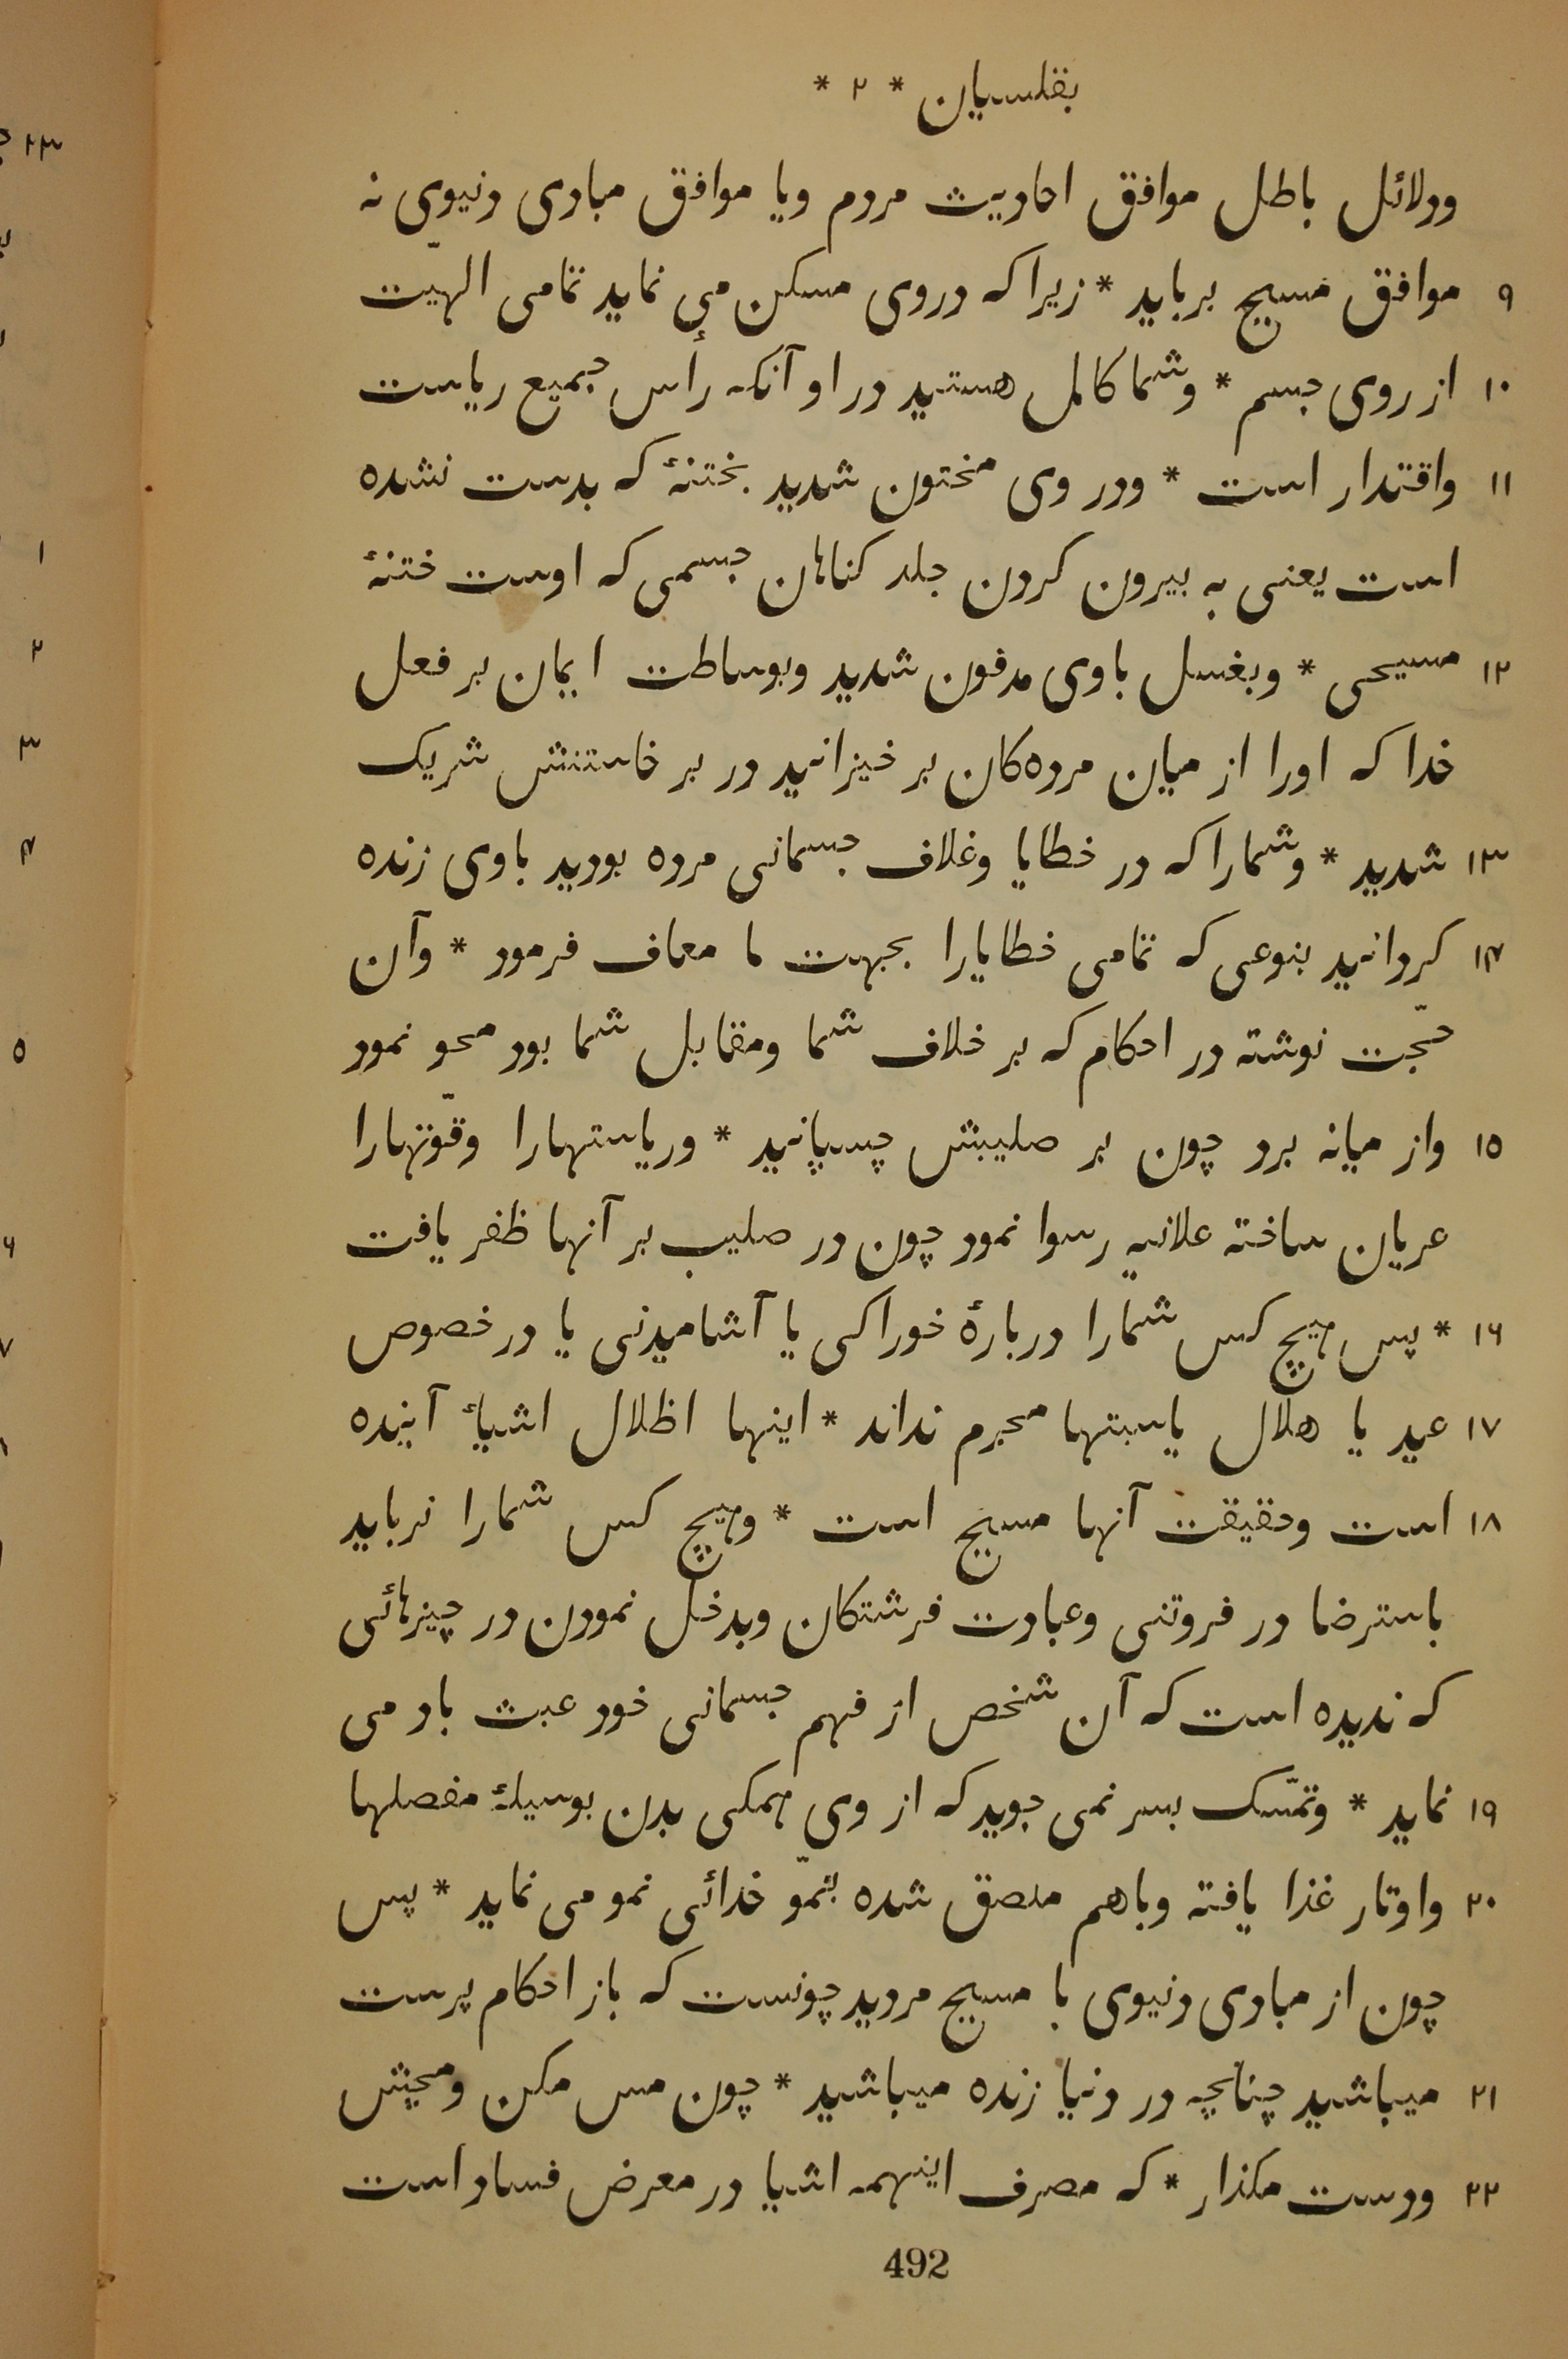 بقلسیان * ۲ *
ودلائل باطل موافق احادیث مردم ویا موافق مبادی دنیوی نه
۹ موافق مسیح برباید * زیرا که دروی مسکن می نماید تمامی الهیّت
۱۰ از روی جسم * وشما کامل هستید در او آنکه رأس جمیع ریاست
۱۱ واقتدار است * ودر وی مختون شدید بختنهٔ که بدست نشده
است یعنی به بیرون کردن جلد کناهان جسمی که اوست ختنهٔ
۱۲ مسیحی * وبغسل باوی مدفون شدید وبوساطت ایمان بر فعل
خدا که اورا از میان مرده‌کان بر خیزانید در بر خاستنش شریک
۱۳ شدید * وشمارا که در خطایا وغلاف جسمانی مرده بودید باوی زنده
۱۴ کردانید بنوعی که تمامی خطایارا بجهت ما معاف فرمود * وآن
حجّت نوشته در احکام که بر خلاف شما ومقابل شما بود محو نمود
۱۵ واز میانه برد چون بر صلیبش چسپانید * وریاستهارا وقوّتهارا
عریان ساخته علانیه رسوا نمود چون در صلیب بر آنها ظفر یافت
۱۶ * پس هیچ کس شمارا دربارهٔ خوراکی یا آشامیدنی یا در خصوص
۱۷ عید یا هلال یاسبتها مجرم نداند * اینها اظلال اشیاءٔ آینده
۱۸ است وحقیقت آنها مسیح است * وهیچ کس شمارا نرباید
باسترضا در فروتنی وعبادت فرشتکان وبدخل نمودن در چیزهائی
که ندیده است که آن شخص از فهم جسمانی خود عبث باد می
۱۹ نماید * وتمسّک بسر نمی جوید که از وی همکی بدن بوسیلهٔ مفصلها
۲۰ واوتار غذا یافته وباهم ملصق شده بنموّ خدائی نمو می نماید * پس
چون از مبادی دنیوی با مسیح مردید چونست که باز احکام پرست
۲۱ میباشید چنانچه در دنیا زنده میباشید * چون مس مکن ومچش
۲۲ ودست مکذار * که مصرف اینهمه اشیا در معرض فساد است
492